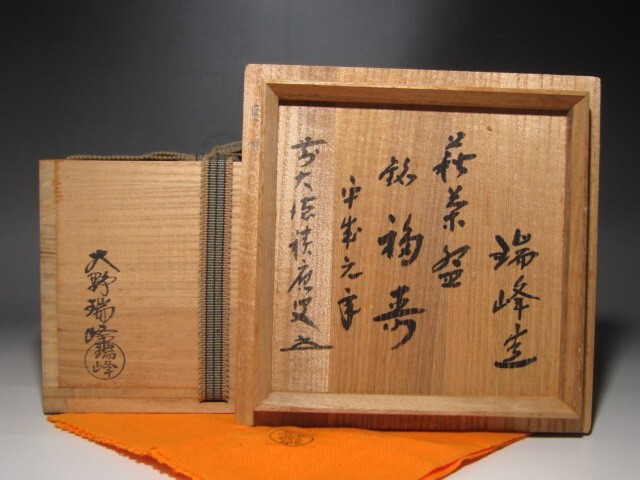 瑞峰造
萩茶盌
銘 福寿
平成元年
前大徳
大野瑞峰
瑞峰